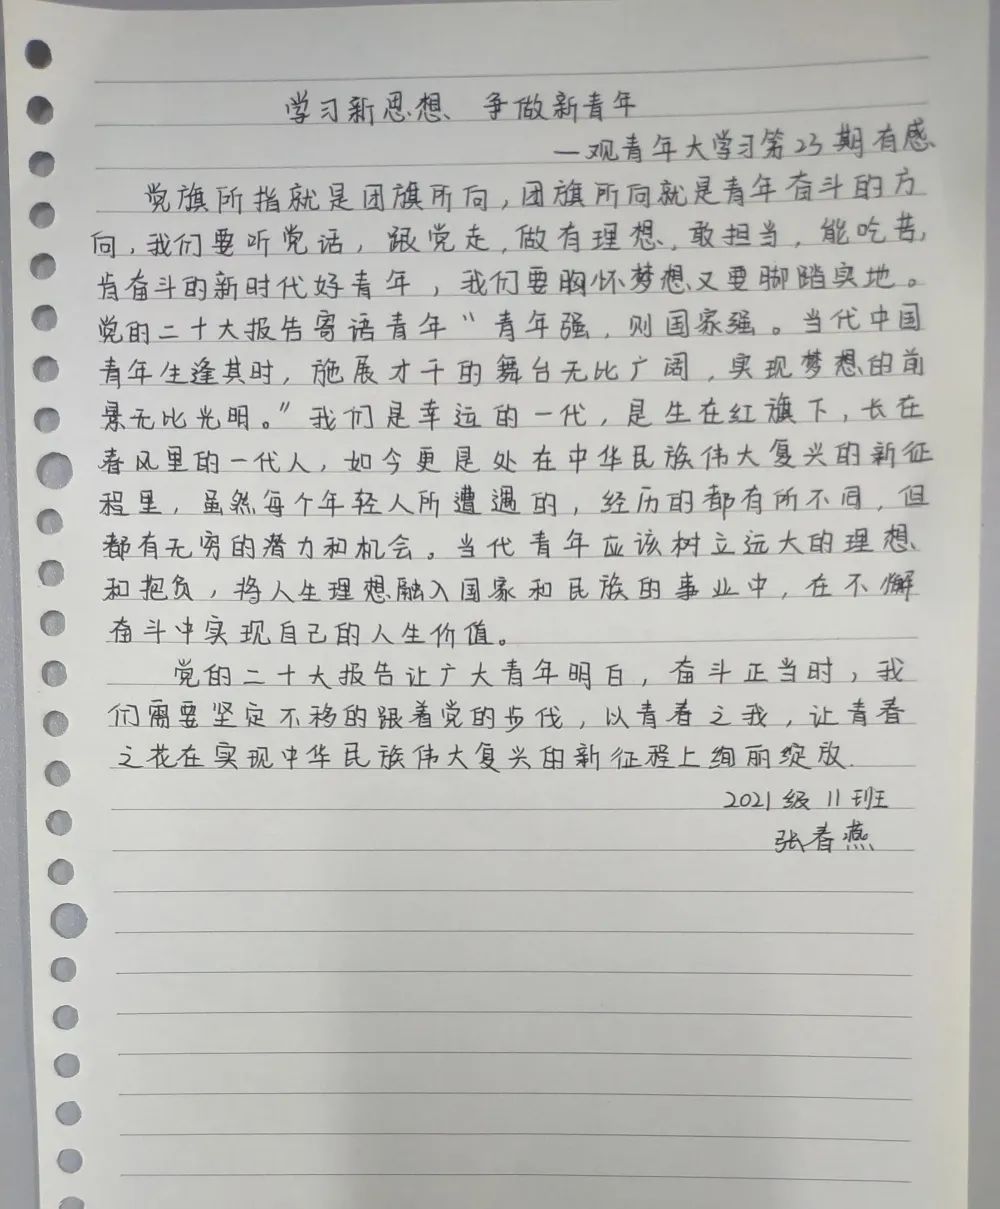 学习新思想、争做新青年
—观青年大学习第23期有感
党旗所指就是团旗所向,团旗所向就是青年奋斗的方
向,我们要听党话,跟党走,做有理想,敢担当,能吃苦,
肯奋斗的新时代好青年,我们要胸怀梦想又要脚踏实地。
党的二十大报告寄语青年“青年强,则国家强。当代中国
青年生逢其时,施展才干的舞台无比广阔,实现梦想的前
景无比光明。”我们是幸运的一代,是生在红旗下,长在
春风里的一代人,如今更是处在中华民族伟大复兴的新征
程里,虽然每个年轻人所遭遇的,经历的都有所不同,但
都有无穷的潜力和机会。当代青年应该树立远大的理想
和抱负,将人生理想融入国家和民族的事业中,在不懈
奋斗中实现自己的人生价值。
党的二十大报告让广大青年明白,奋斗正当时,我
们需要坚定不移的跟着党的步伐,以青春之我,让青春
之花在实现中华民族伟大复兴的新征程上绚丽绽放.
2021级11班
张春燕